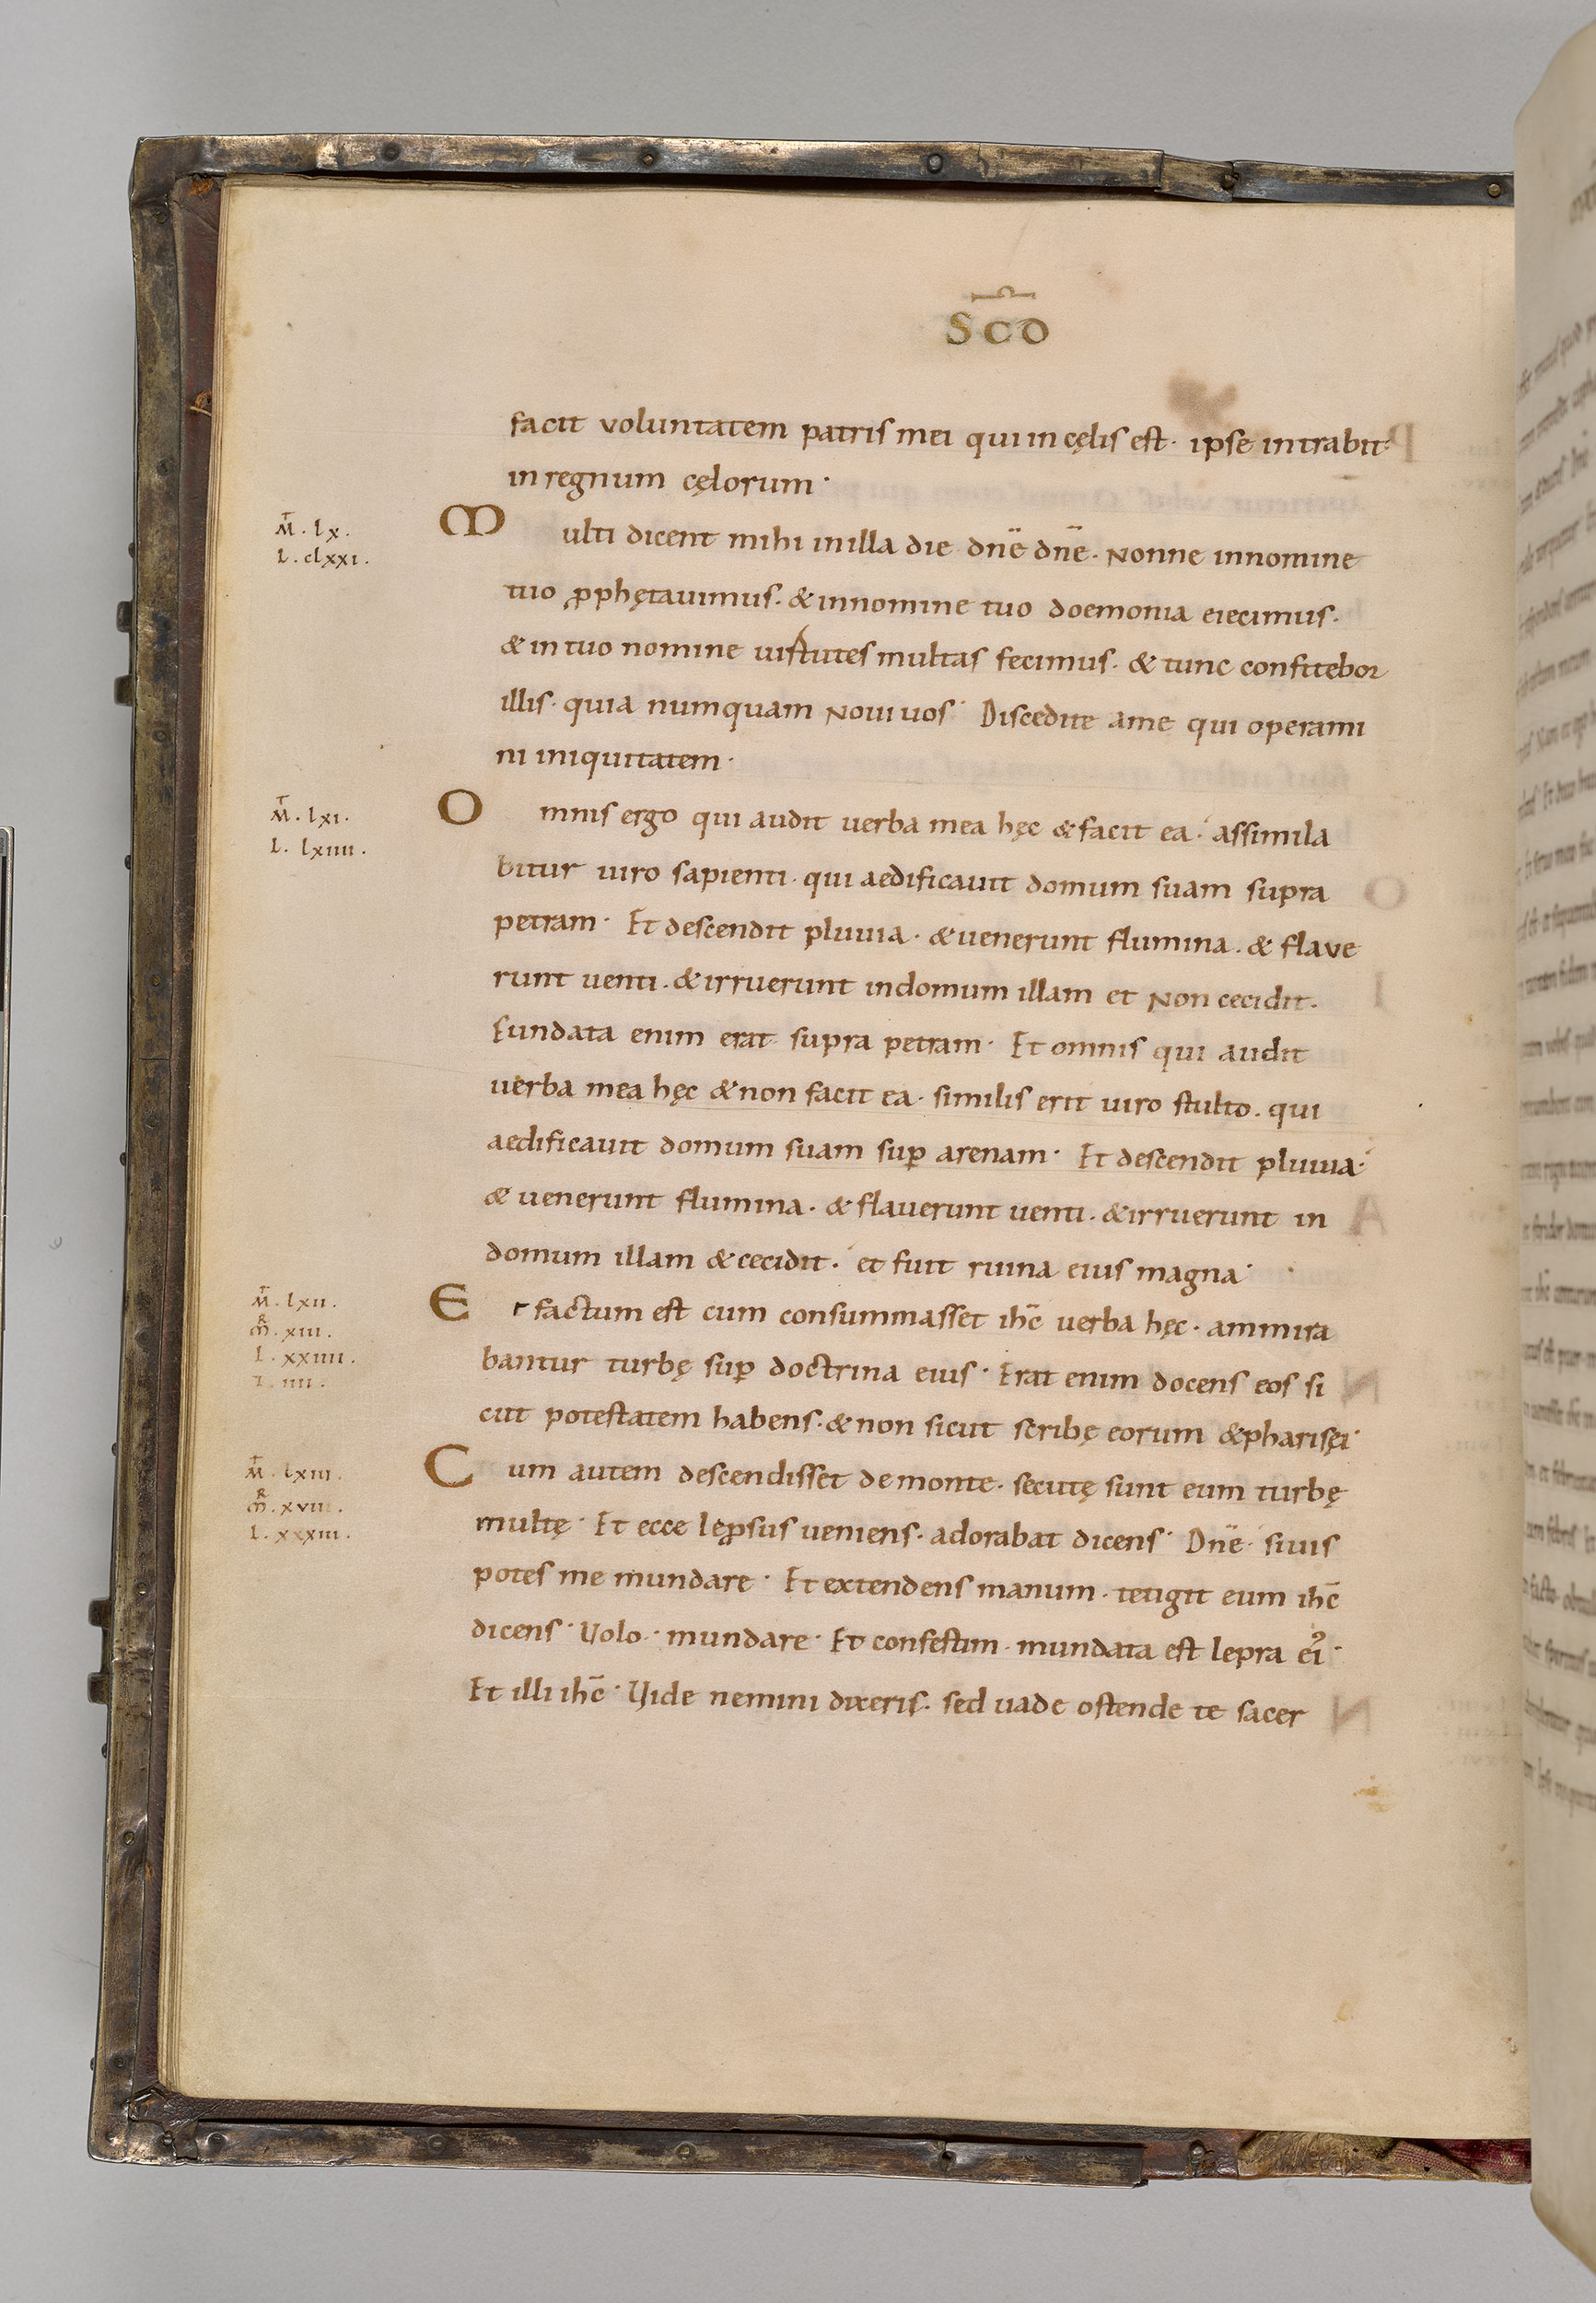 SCD̄
facit voluntatem patris mei qui in cęlis est· ipse intrabit·
in regnum cęlorum·
M̄T · lx ·
L · clxxi ·
Multi dicent mihi in illa die dn̄e dn̄e· Nonne in nomine
tuo ꝓphętauimus· & in nomine tuo doemonia eiecimus·
& in tuo nomine uirtutes multas fecimus· & tunc confitebor
illis· quia numquam Noui uos· Discedite a me qui operami
ni iniquitatem·
M̄T · lxi ·
L · lxiiii ·
Omnis ergo qui audit uerba mea hęc & facit ea· assimila
bitur uiro sapienti· qui aedificauit domum suam supra
petram· Et descendit pluuia· & uenerunt flumina· & flave
runt uenti· & irruerunt in domum illam et Non cecidit·
Fundata enim erat supra petram· Et omnis qui audit
uerba mea hęc & non facit ea· similis erit uiro stulto· qui
aedificauit domum suam sup̱ arenam· Et descendit pluuia·
& uenerunt flumina· & flauerunt uenti· & irruerunt in
domum illam & cecidit· et fuit ruina eius magna·
M̄T · lxii ·
MR · xiii ·
L · xxiiii ·
I · iiii ·
Et factum est cum consummasset ihc̄ uerba hęc· ammira
bantur turbę sup̱ doctrina eius· Erat enim docens eos si
cut potestatem habens· & non sicut scribę eorum & pharisęi·
M̄T · lxiii ·
MR · xviii ·
L · xxxiii ·
Cum autem descendisset de monte· secutę sunt eum turbę
multę· Et ecce lep̱sus ueniens· adorabat dicens· Dn̄e· si uis
potes me mundare· Et extendens manum· tetigit eum ihc̄
dicens· Uolo· mundare· Et confestim· mundata est lepra ei᾿·
Et illi ihc̄· Uide nemini dixeris· sed uade ostende te sacer